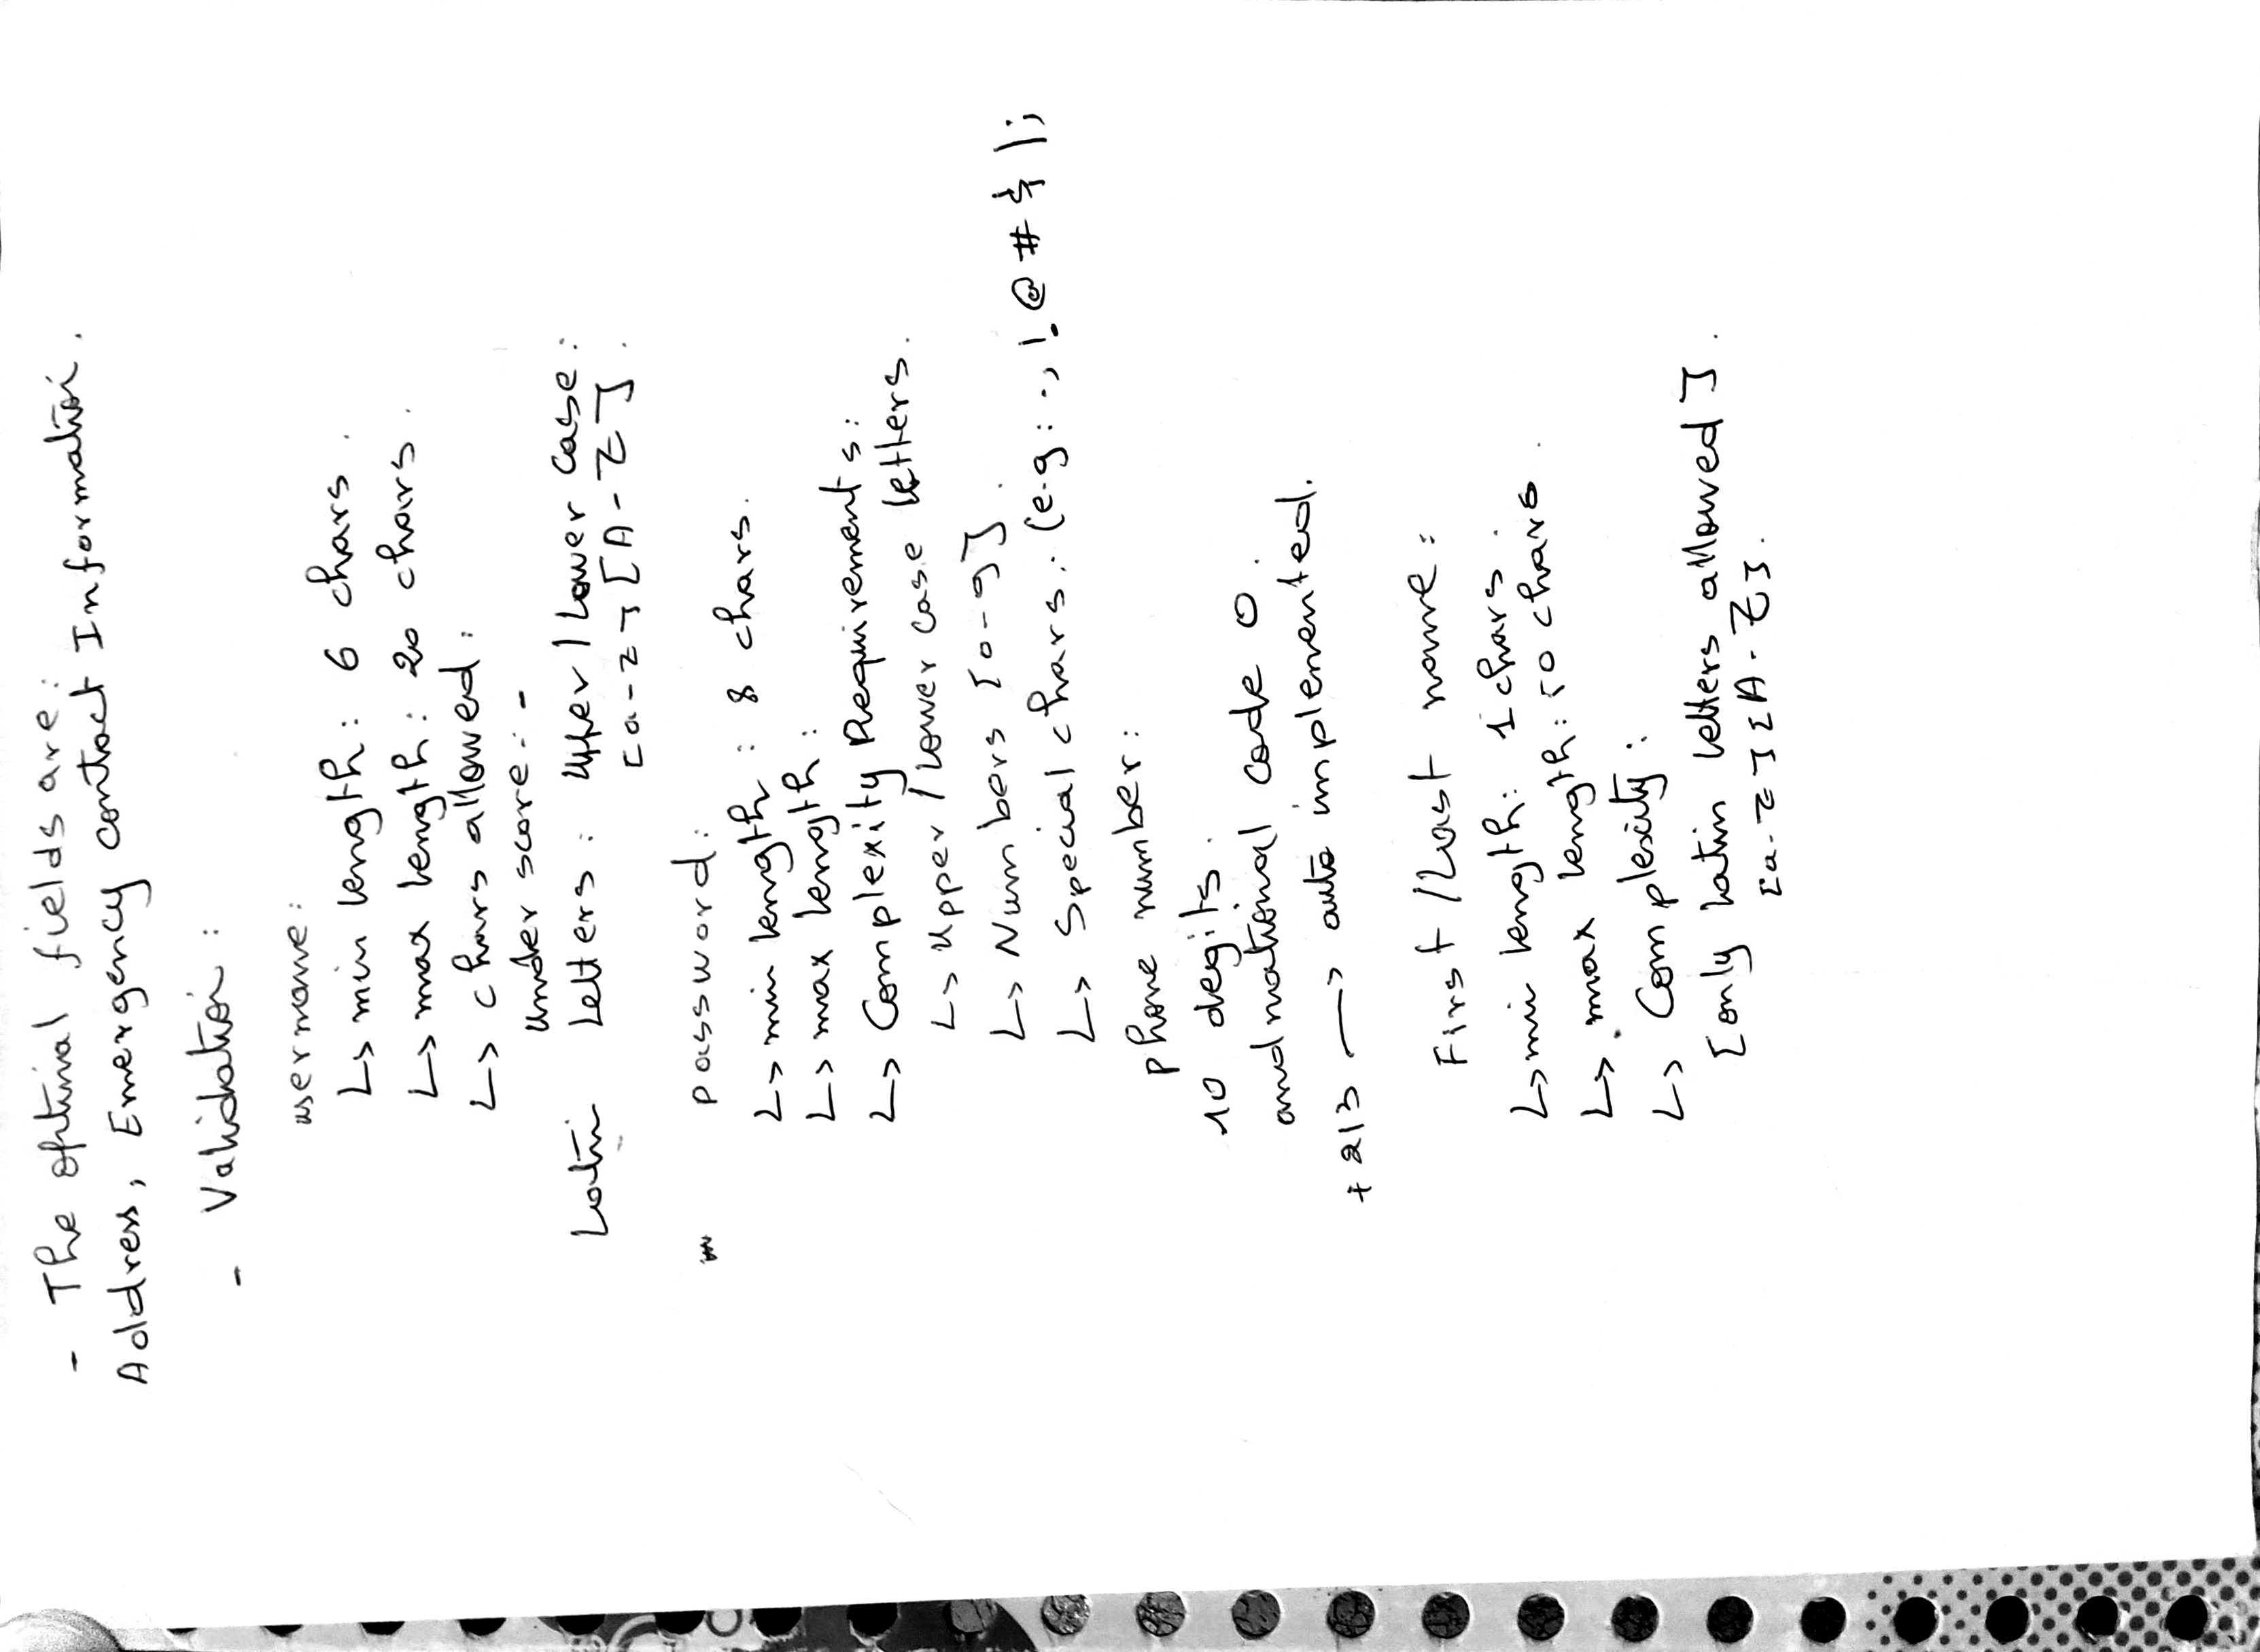 - The optinal fields are:
Address, Emergency contact Information.
- Validation:
username:
↳ min length: 6 chars.
↳ max length: 20 chars.
↳ chars allowed:
Under score: -
Latin Letters: Upper / Lower case:
[a-z] [A-Z].
password:
↳ min length: 8 chars.
↳ max length:
↳ Complexity Requirements:
↳ Upper / Lower case letters.
↳ Numbers [0-9].
↳ Special chars: (e.g: ., !@#$|;
phone number:
10 degits.
and national code 0.
+213 → auto implemented.
First / Last name:
↳ min length: 1 chars.
↳ max length: 50 chars.
↳ Complexity:
[only Latin letters allowed].
[a-z] [A-Z].